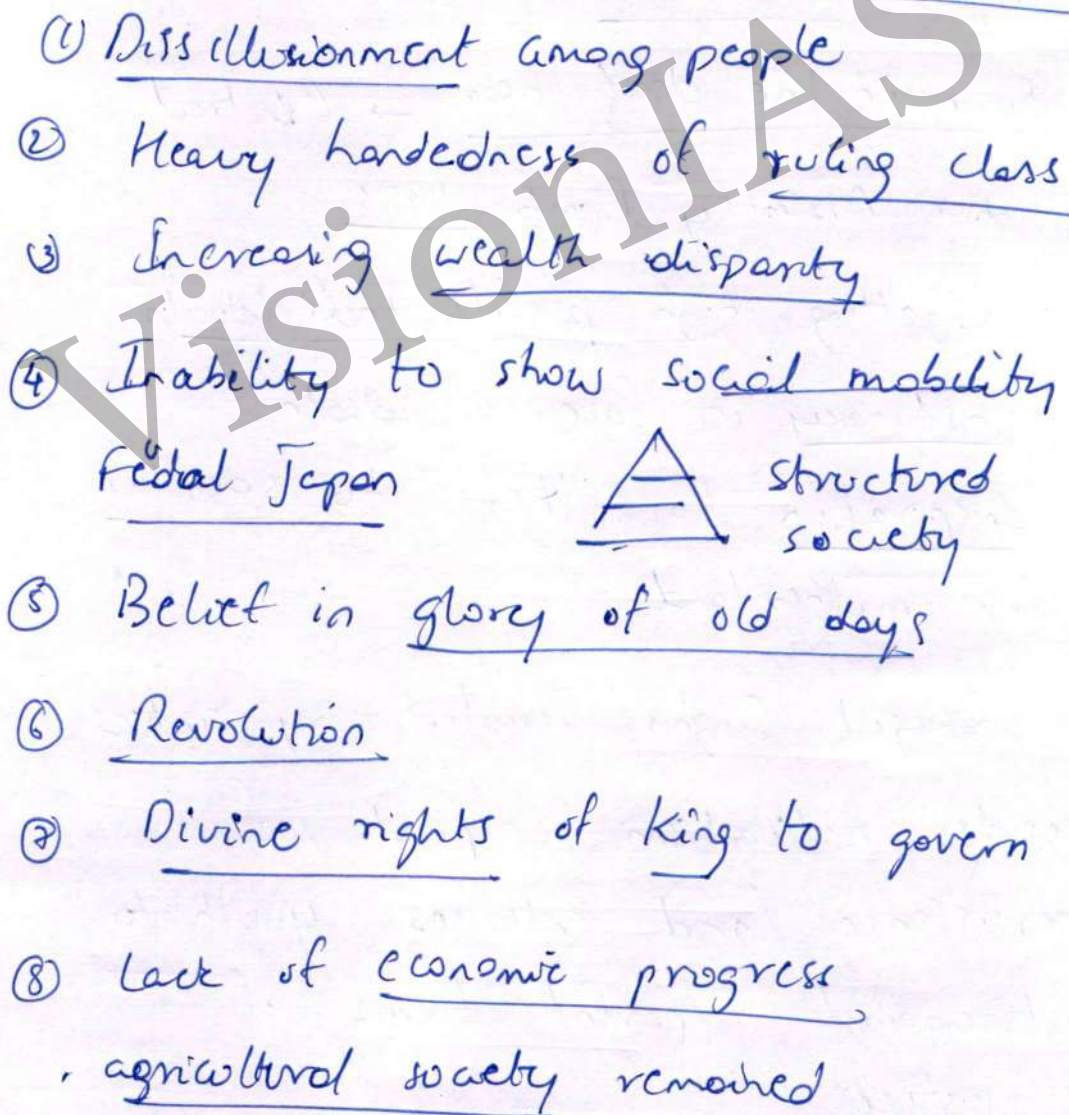 ① Dissillusionment among people
② Heavy handedness of ruling class
③ Increasing wealth disparity
④ Inability to show social mobility
Fedral Japan structured
society
⑤ Belief in glory of old days
⑥ Revolution
⑦ Divine rights of King to govern
⑧ Lack of economic progress
. agricultural society remained
VisionIAS